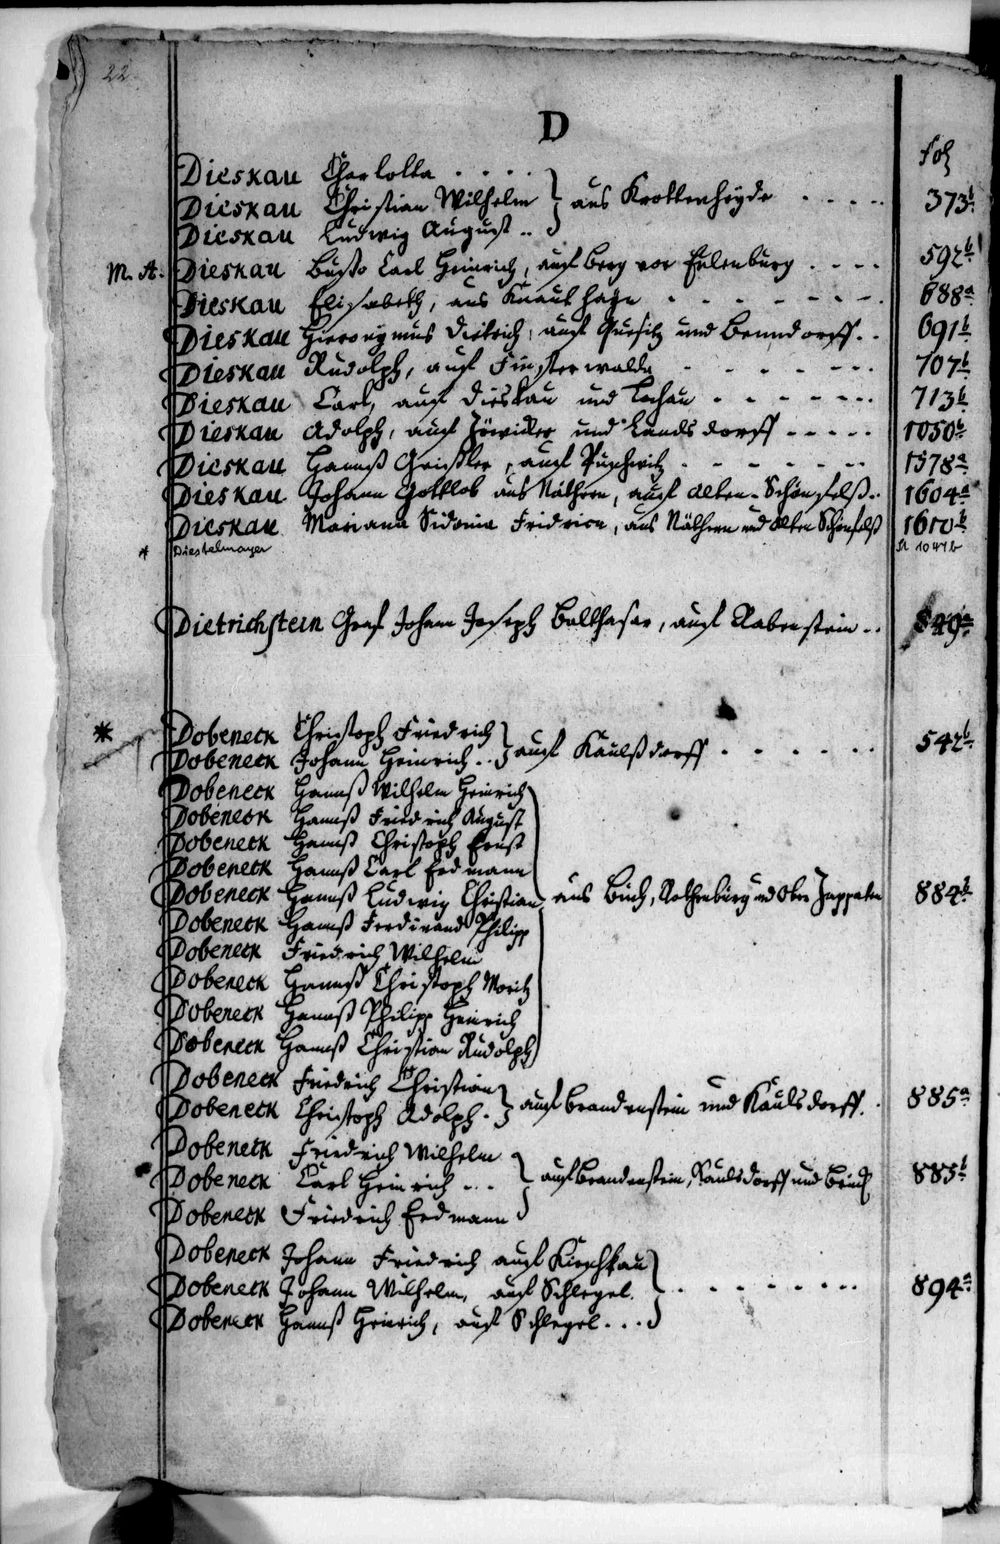 22
D
Fol
Dieskau Charlotta . . . .
Dieskau Christian Wilhelm } aus Krottenheyde . . . . . 373b
Dieskau Ludwig August ..
M. A. Dieskau Busso Carl Heinrich, auf Berg vor Eulenburg . . . . 592b
Dieskau Elisabeth, aus Knauthayn . . . . . . . 688a
Dieskau Hieronymus Dietrich, auf Quesitz und Benndorff. . 691b
Dieskau Rudolph, auf Finsterwalda . . . . . . . 707b
Dieskau Carl, auf Dieskau und Lochau . . . . . . . 713b
Dieskau Adolph, auf und Landsdorff . . . . . 1050b
Dieskau Hannß Geißler, auf . . . . . . . 1578a
Dieskau Johann Gottlob aus Näthern, auf Alten-Schönfelß.. 1604a
Dieskau Mariana Sidonia Fridrica, aus Näthern und Alten Schönfelß 1610b
* Diestelmayer 1047b
Dietrichstein Graf Johann Joseph Balthasar, auf Rabenstein .. 849a
* Dobeneck Christoph Friedrich
Dobeneck Johann Heinrich . . } auf Kaulßdorff . . . . . . 542b
Dobeneck Hannß Wilhelm Heinrich
Dobeneck Hannß Friedrich August
Dobeneck Hannß Christoph Ernst
Dobeneck Hannß Carl Erdmann
Dobeneck Hannß Ludwig Christian } aus Buch, Rothenburg und Ober 884b
Dobeneck Hannß Ferdinand Philipp
Dobeneck Friedrich Wilhelm
Dobeneck Hannß Christoph Moritz
Dobeneck Hannß Philipp Heinrich
Dobeneck Hannß Christian Rudolph
Dobeneck Friedrich Christian
Dobeneck Christoph Adolph . } auf Brandenstein und Kaulsdorff. . 885a
Dobeneck Friedrich Wilhelm
Dobeneck Carl Heinrich . . . } auf Brandenstein, Kaulsdorff und 885b
Dobeneck Friedrich Erdmann
Dobeneck Johann Friedrich auf Kirschkau
Dobeneck Johann Wilhelm, auf Schlegel. } . . . . . . . 894a
Dobeneck Hannß Heinrich, auf Schlegel . . .